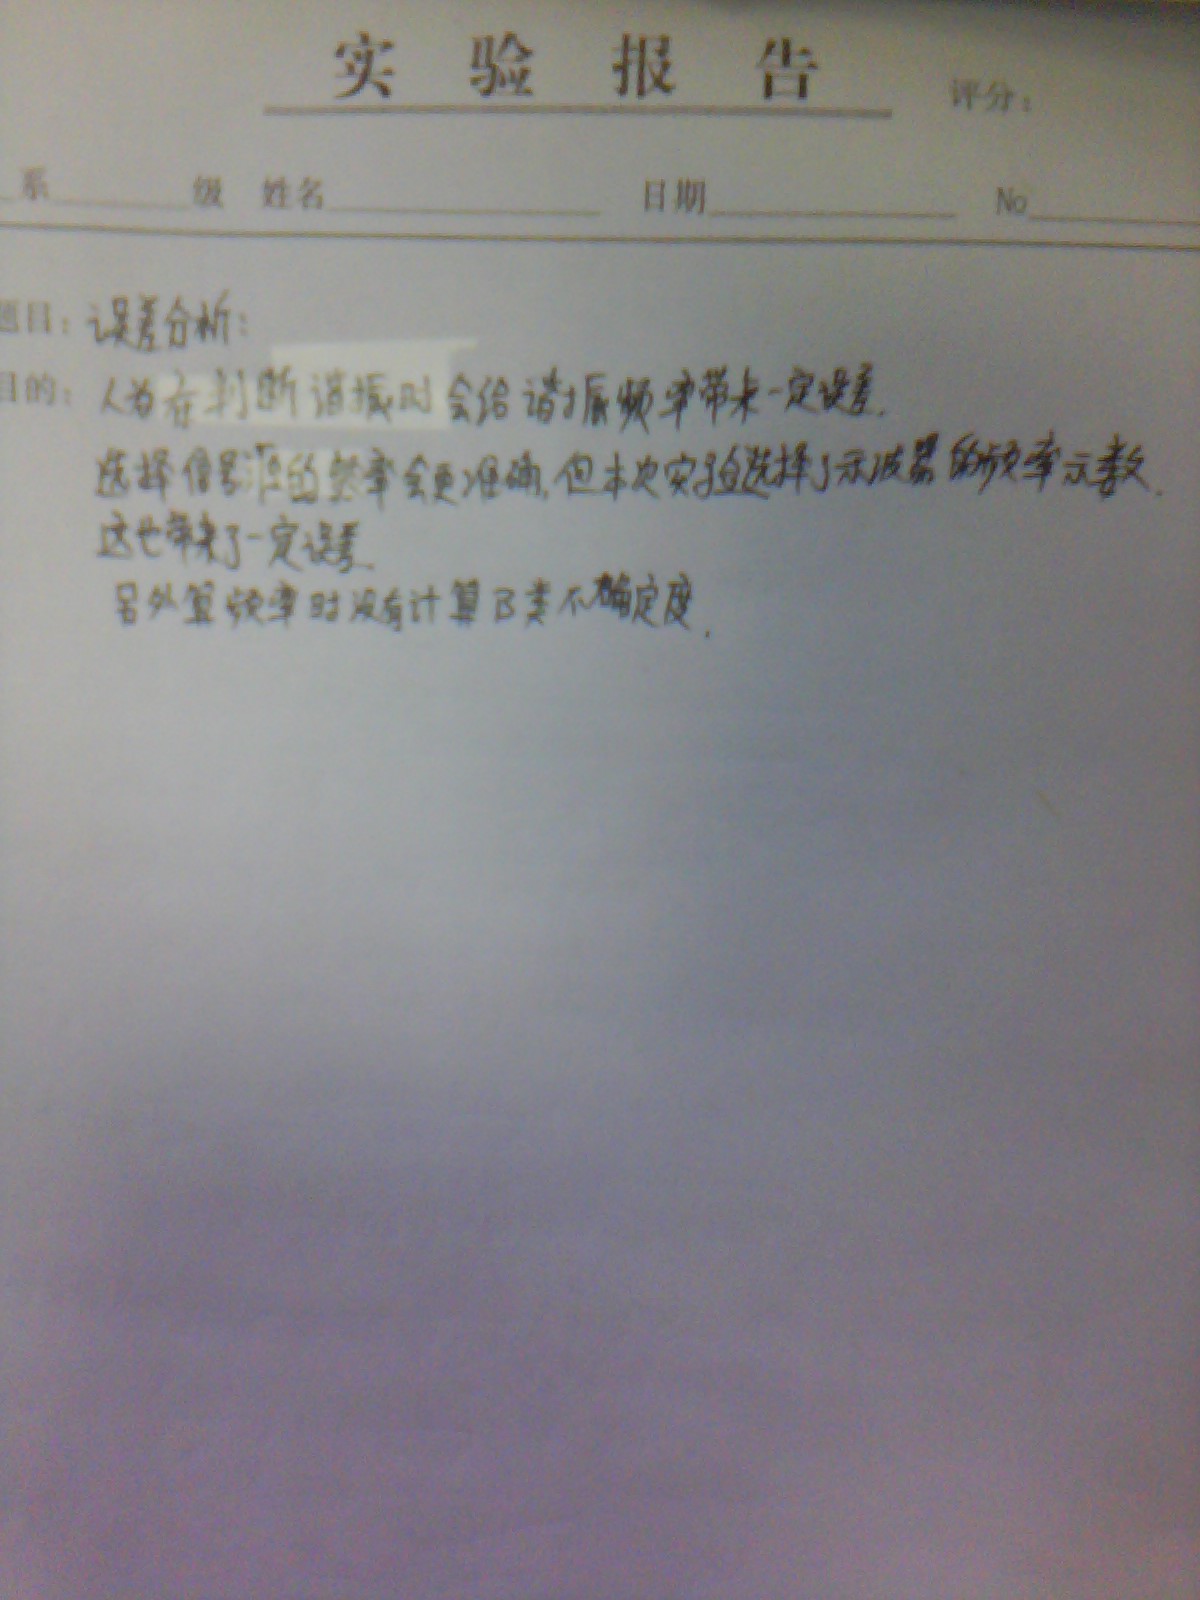 实验报告
评分：
系 级 姓名 日期 No
题目：误差分析：
目的：人为在判断谐振时会给谐振频率带来一定误差.
选择信号源的频率会更准确,但本次实验选择了示波器的频率示数.
这也带来了一定误差.
另外算频率时没有计算B类不确定度.